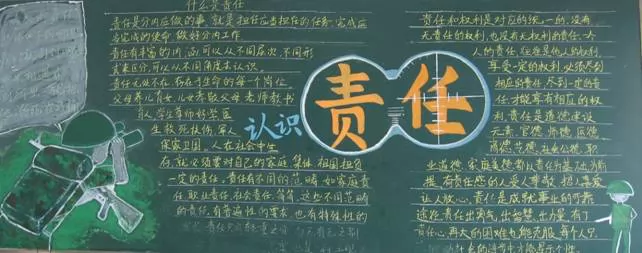 什么是责任
责任是分内应做的事,就是担任应当担任的任务,完成应
当完成的使命,做好分内工作.
责任有丰富的内涵,可以从不同层次、不同形
式来区分,可以从不同角度去认识.
责任无处不在,存在于生命的每一个岗位.
父母养儿育女,儿女孝敬父母,老师教书
育人,学生尊师好学,医
生救死扶伤,军人
保家卫国,人在社会中生
存,就必须要对自己的家庭、集体、祖国担负
一定的责任.责任有不同的范畴,如家庭责
任,职业责任,社会责任,等等.这些不同范畴
的责任,有普遍性的要求,也有特殊性的
认识
责任
责任和权利是对应的统一的,没有
无责任的权利,也没有无权利的责任.一个
人的责任,往往是他人的权利,
享受一定的权利,必须尽到
相应的责任,尽到一定的责
任,才能享有相应的权
利.责任是道德建设
元素,官德、师德、医德、
商德、艺德、社会公德、职
业道德、家庭美德都以责任为基础、为前
提.有责任感的人受人尊敬,招人喜爱,
让人放心.责任是成就事业的可靠
途径.责任出勇气、出智慧、出力量.有了
责任心,再大的困难也能克服